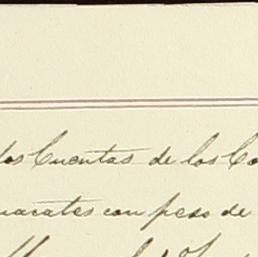 los Cuentas de los Co
uacates con peso de